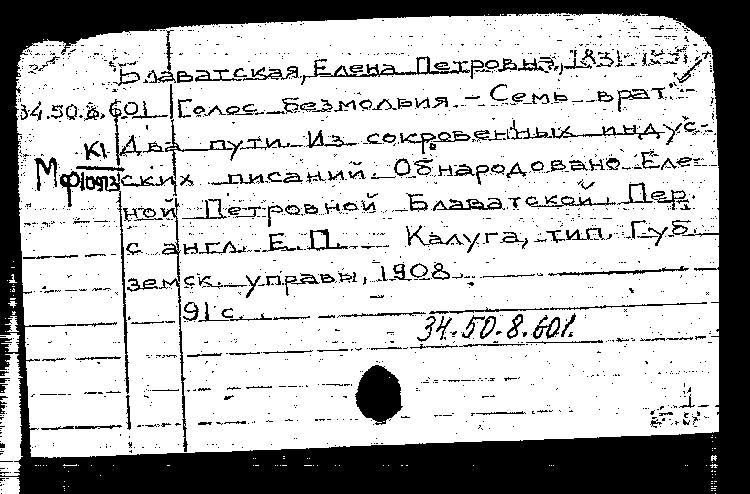 Блаватская, Елена Петровна, 1831-1891
34.50.8.601 Голос безмолвия. - Семь врат. -
К1 Два пути. Из сокровенных индус-
Мф ских писаний. Обнародовано Еле-
ной Петровной Блаватской. Пер.
с англ. Е. П. Калуга, тип. Губ.
земск. управы, 1908.
91 с.
34.50.8.601.